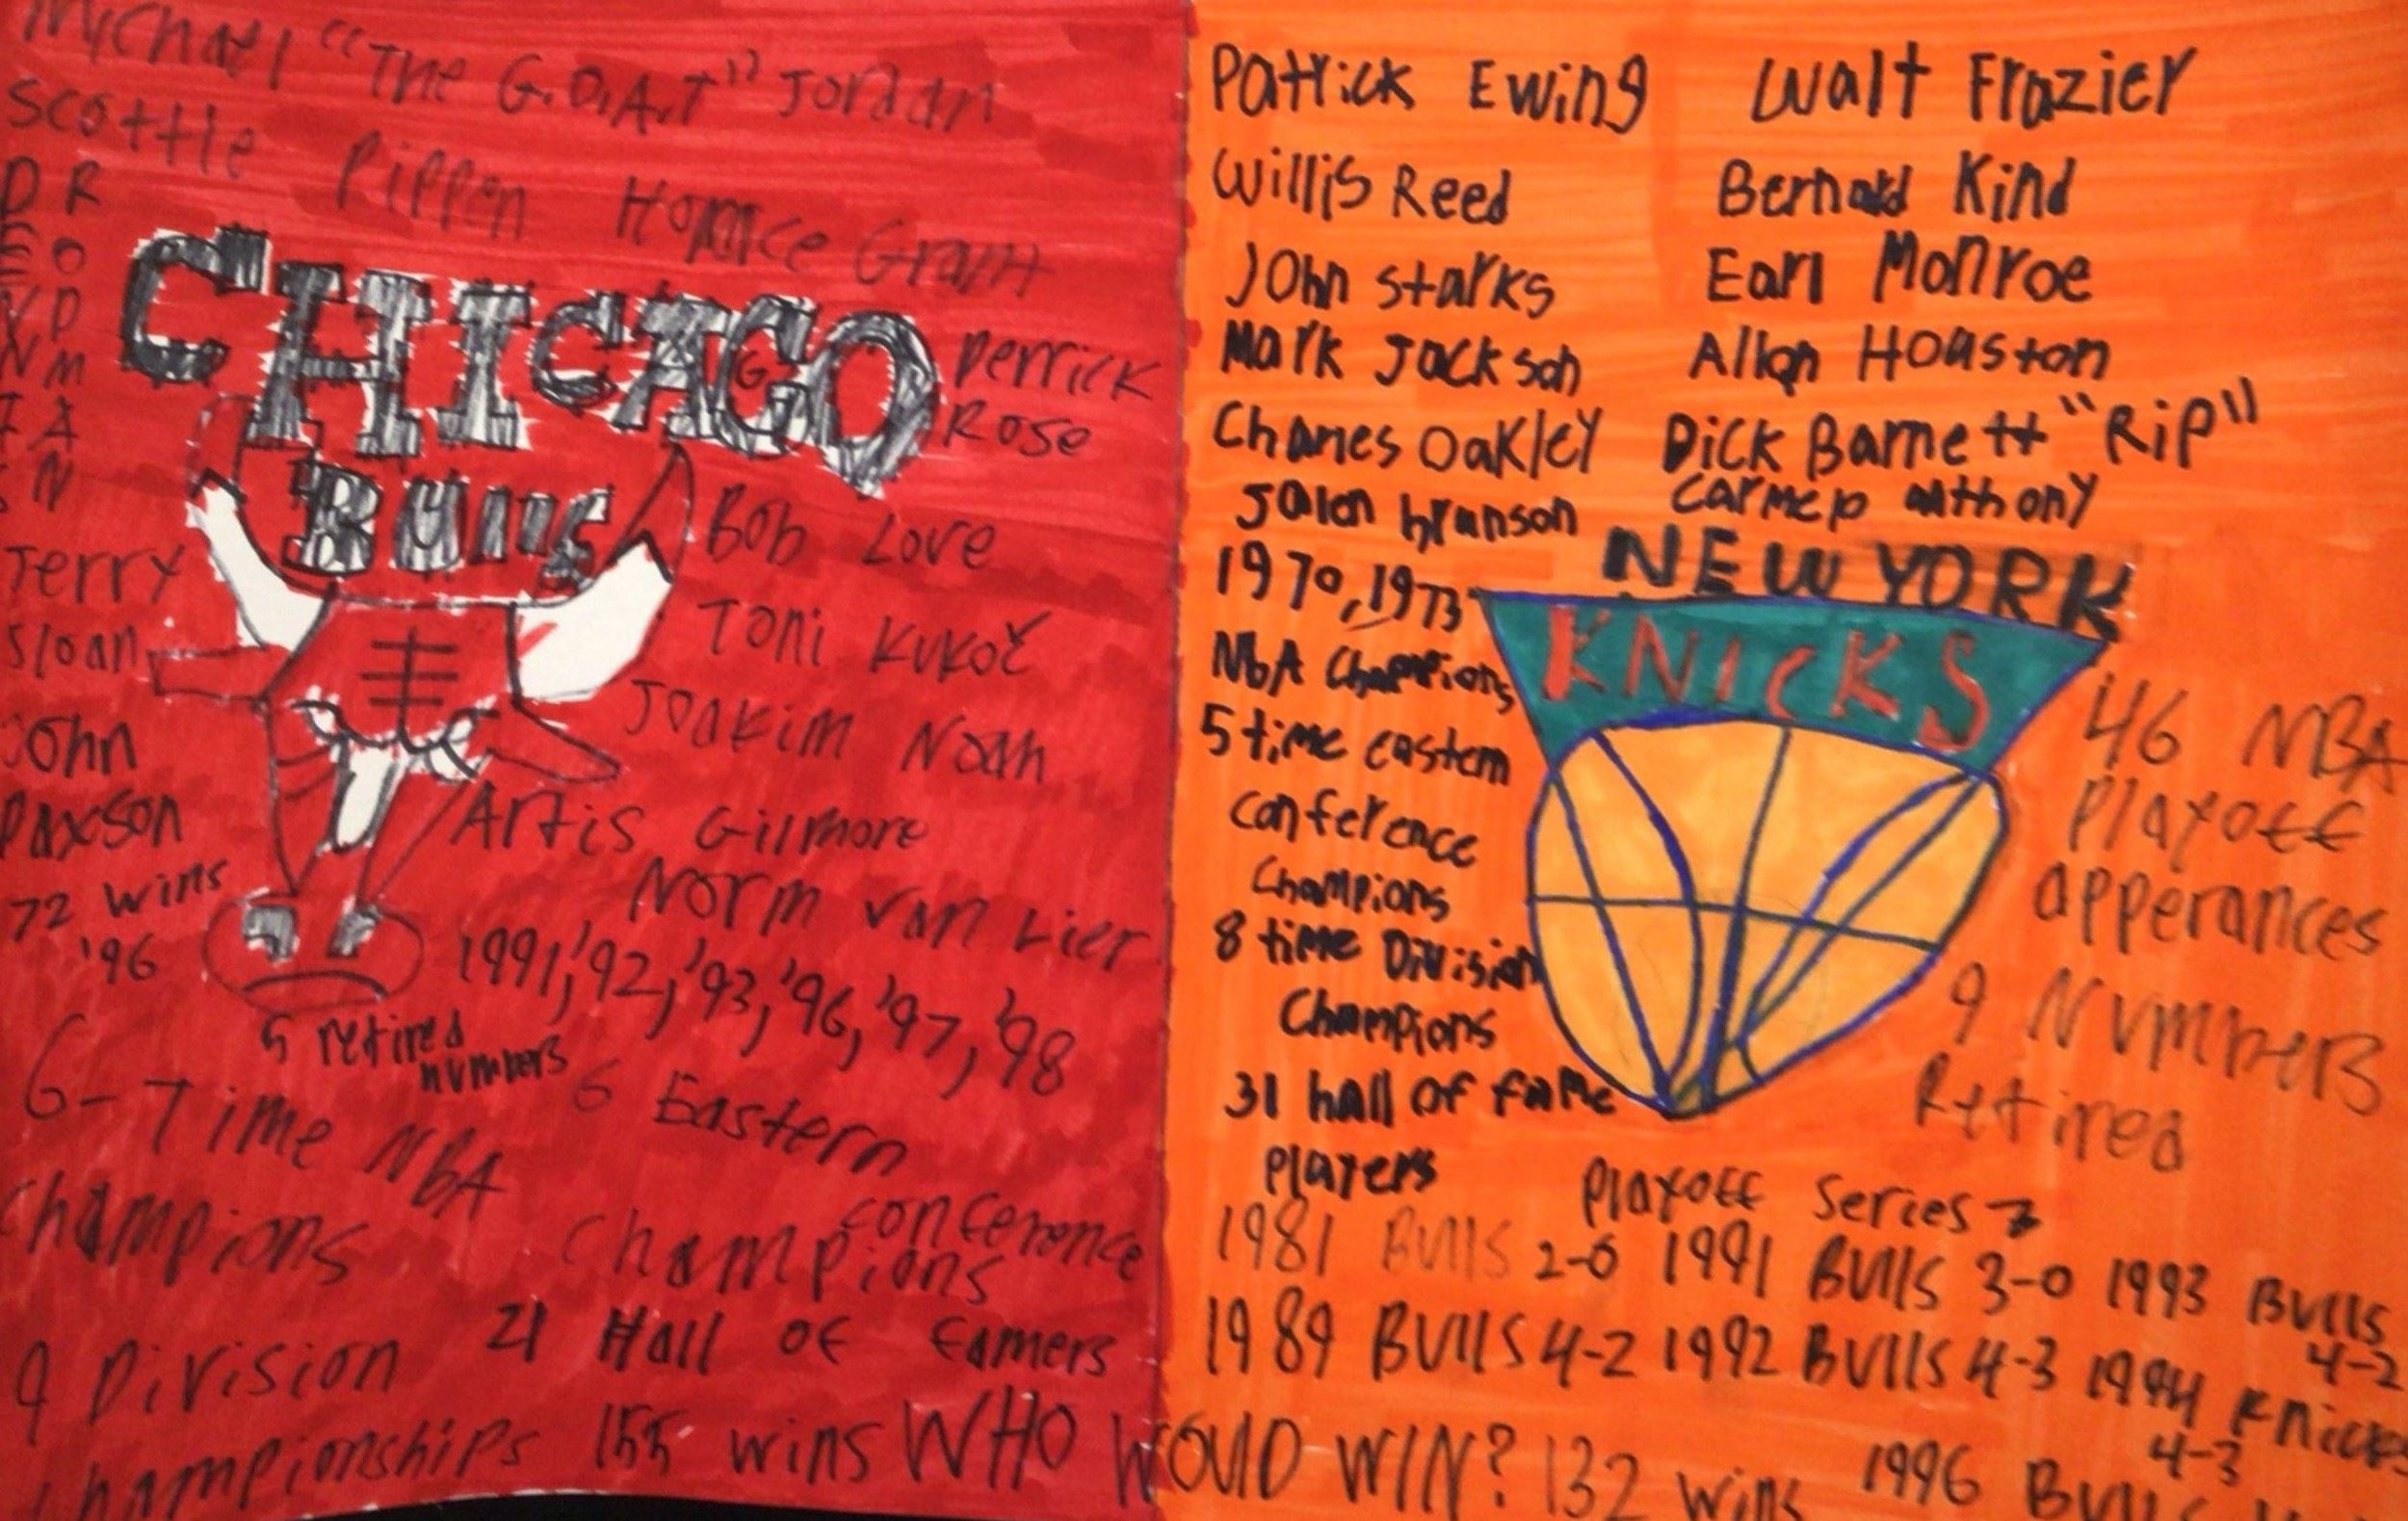 Michael "The G.O.A.T" Jordan
Scottie Pippen Horace Grant
DENNIS RODMAN
CHICAGO
BULLS
Derrick
Rose
Bob Love
Jerry
Sloan
Toni Kukoč
Joakim Noah
John
Paxson
Artis Gilmore
Norm Van Lier
72 wins
'96
1991, '92, '93, '96, '97, '98
5 retired
numbers
6-Time NBA
Champions
6 Eastern
conference
Champions
21 Hall of famers
9 Division
Championships
155 wins
WHO WOULD WIN?
132 wins
Patrick Ewing
Willis Reed
John Starks
Mark Jackson
Charles Oakley
Jalen brunson
Walt Frazier
Bernard Kind
Earl Monroe
Allan Houston
Dick Barnett "Rip"
Carmelo anthony
NEW YORK
KNICKS
1970, 1973
NbA Champions
5 time eastern
conference
Champions
8 time Division
Champions
31 hall of fame
players
46 NBA
Playoff
apperances
9 Numbers
Retired
Playoff Series
1981 Bulls 2-0 1991 Bulls 3-0 1993 Bulls
4-2
1989 Bulls 4-2 1992 Bulls 4-3 1994 Knicks
4-3
1996 Bulls